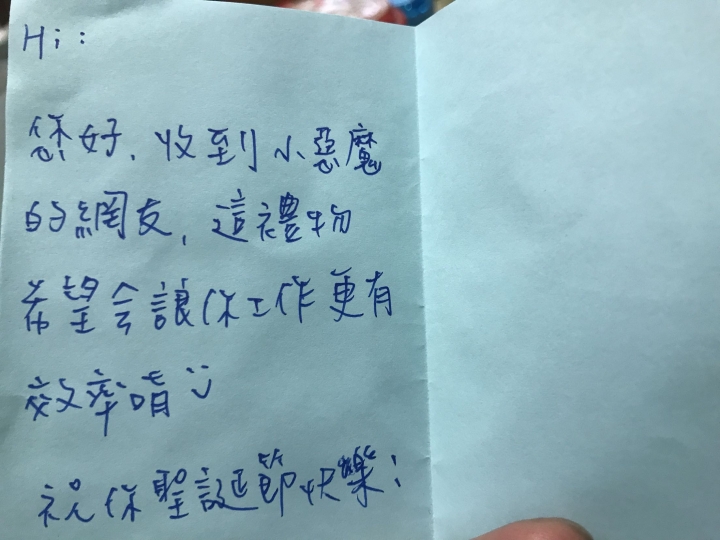 Hi:
您好,收到小惡魔
的網友,這禮物
希望會讓你工作更有
效率唷
祝你聖誕節快樂!